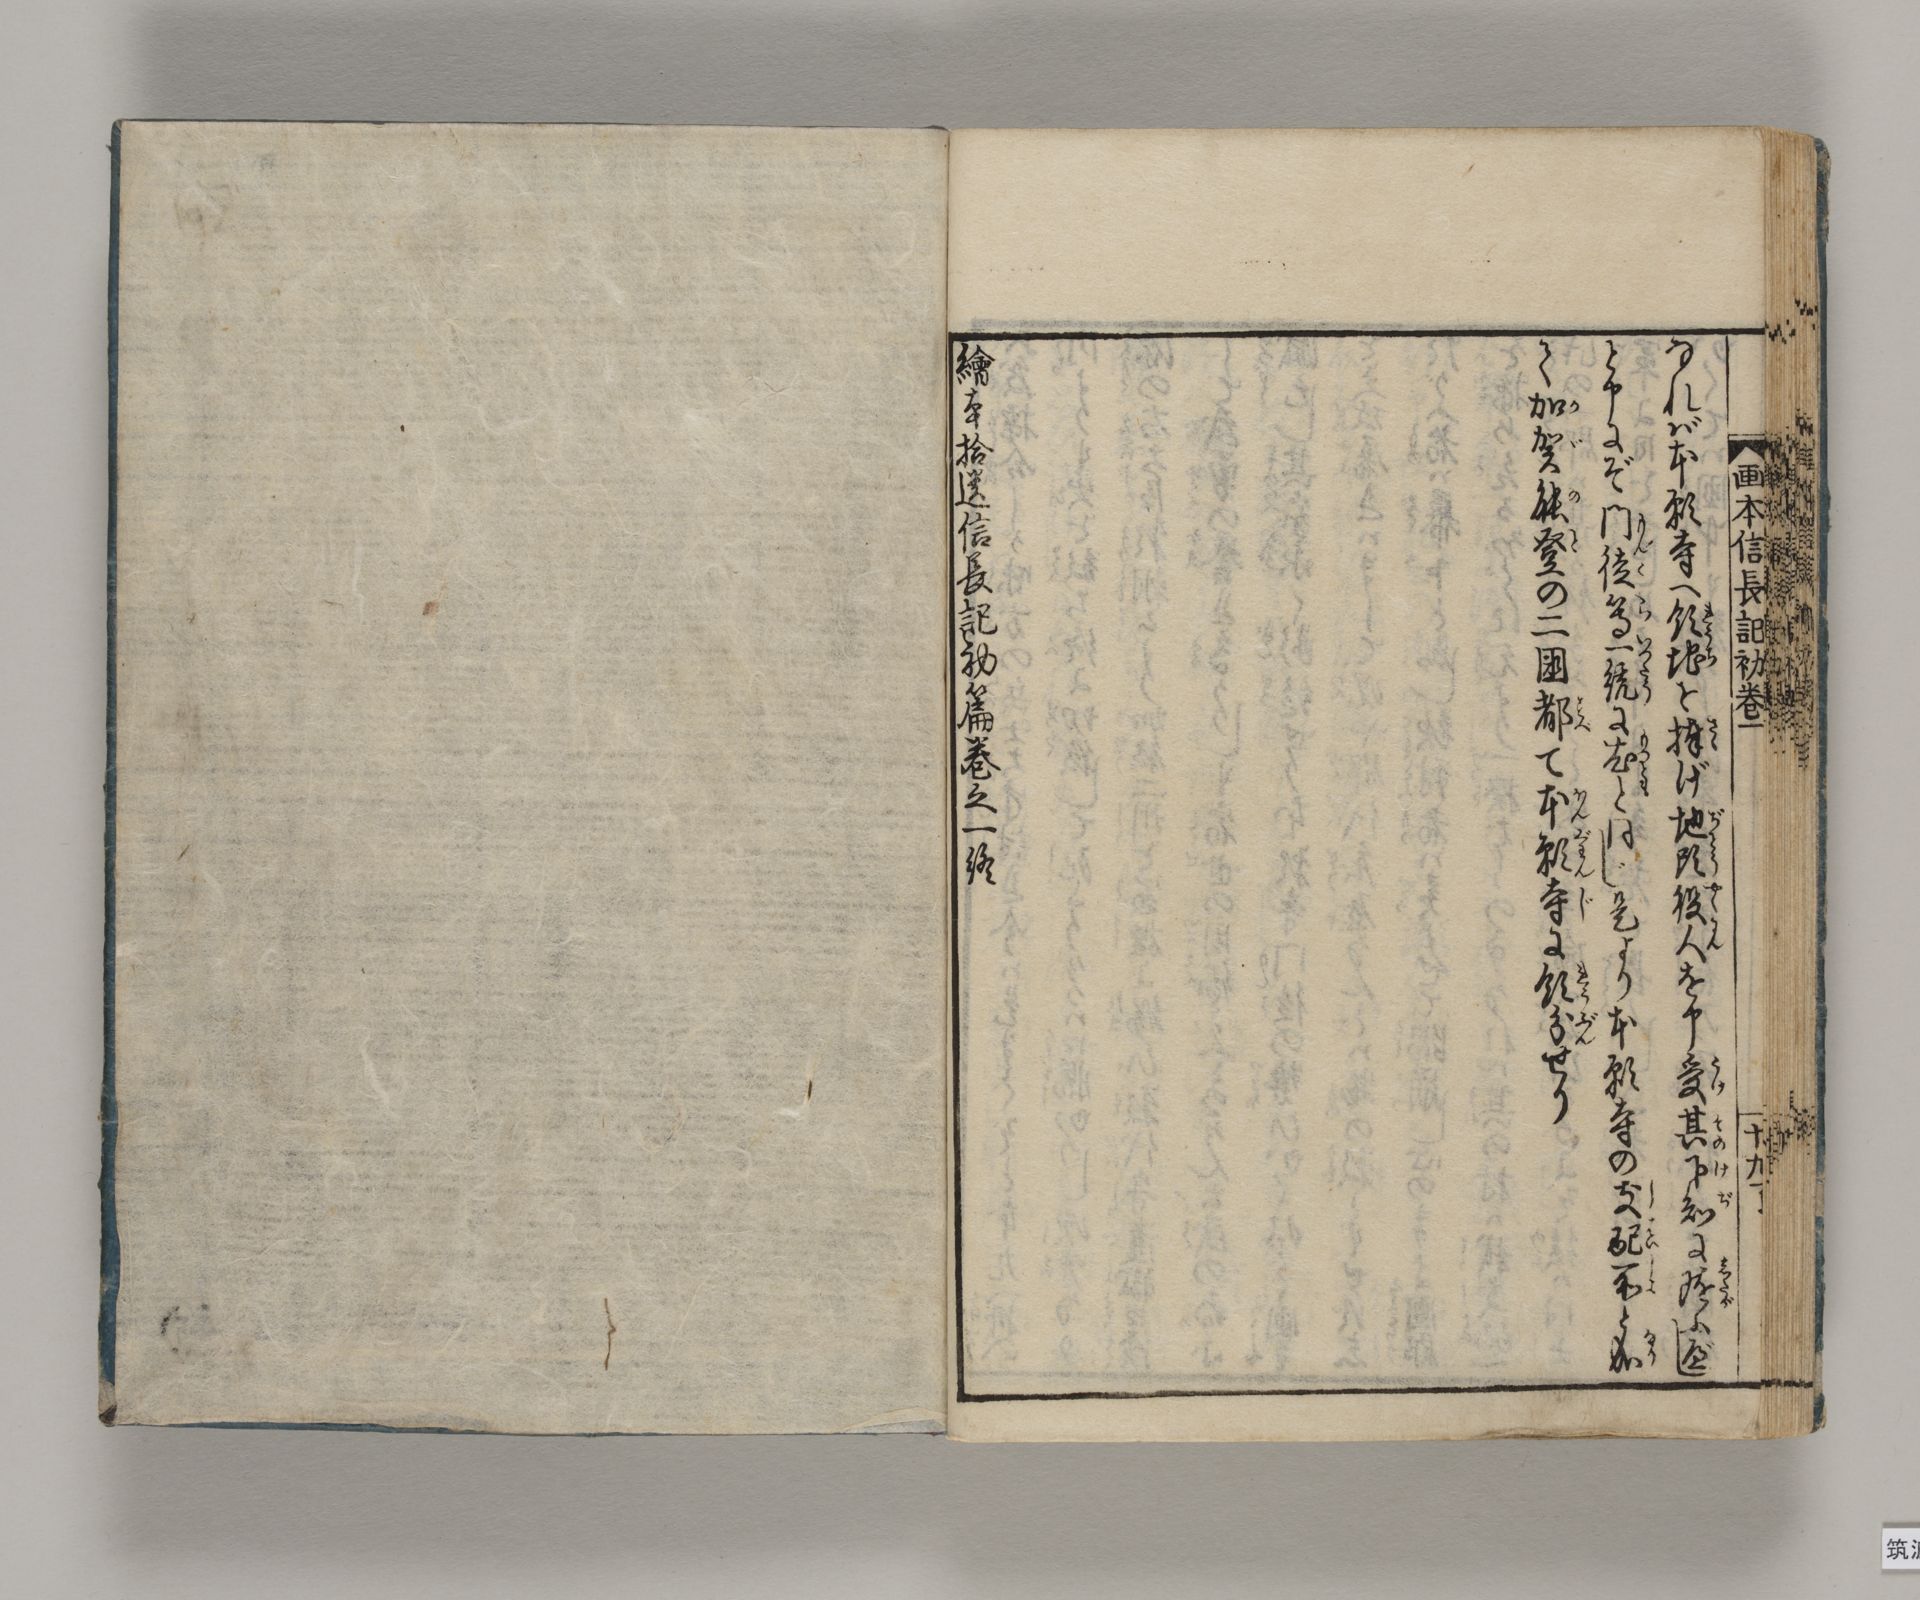 画本信長記初巻一
十九丁
なれバ本願寺へ領地を捧げ地頭役人を申受其下知に随ふべし
と申にぞ門徒等一統に尤と同じ是より本願寺の支配所と成
て加賀能登の二国都て本願寺に領分せり
繪本拾遺信長記初篇巻之一終
筑波